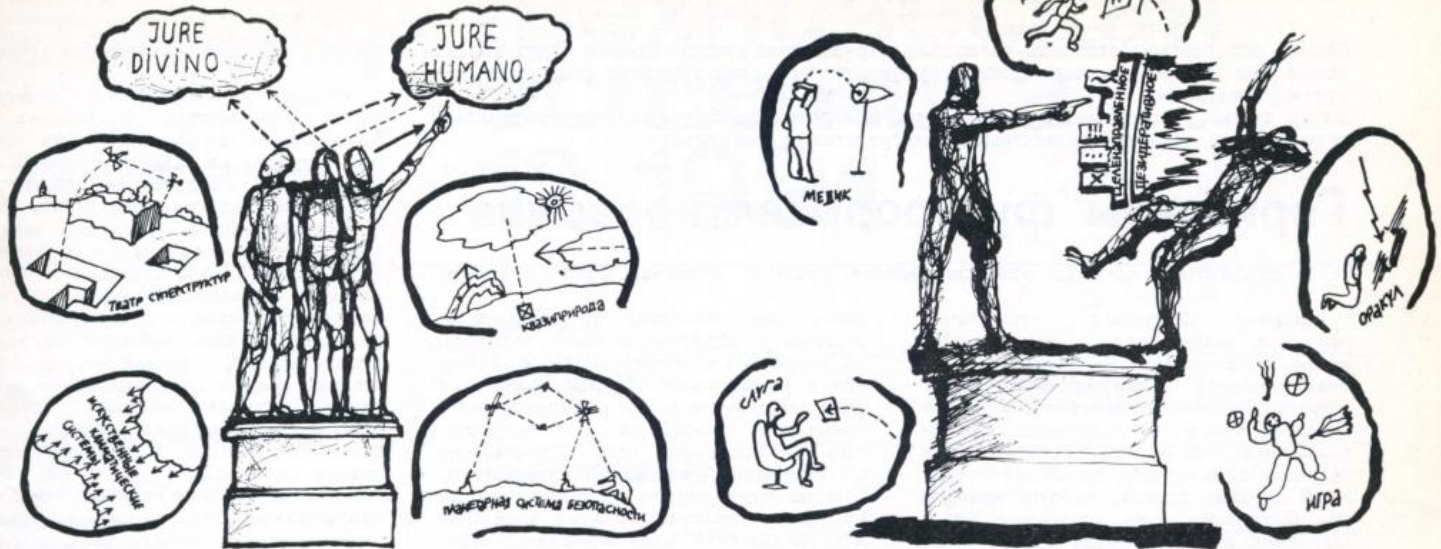 JURE
DIVINO
JURE
HUMANO
ТЕАТР СУПЕРСТРУКТУР
КВАЗИПРИРОДА
ИСКУССТВЕННЫЕ
КЛИМАТИЧЕСКИЕ
СИСТЕМЫ
ПЛАНЕТАРНАЯ СИСТЕМА БЕЗОПАСНОСТИ
МЕДИК
ЦЕЛЕНАПРАВЛЕННОЕ
ДЕЗИДЕРАТИВНОЕ
ОРАКУЛ
СЛУГА
ИГРА